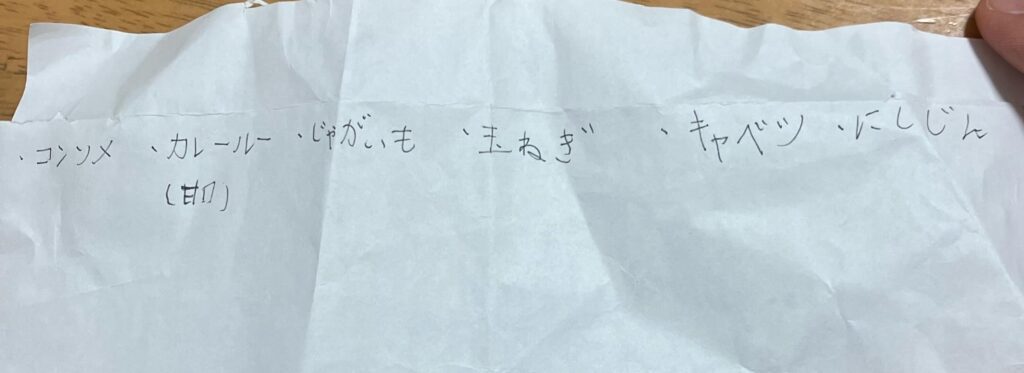 ・コンソメ ・カレールー ・じゃがいも ・玉ねぎ ・キャベツ ・にしじん
(甘口)